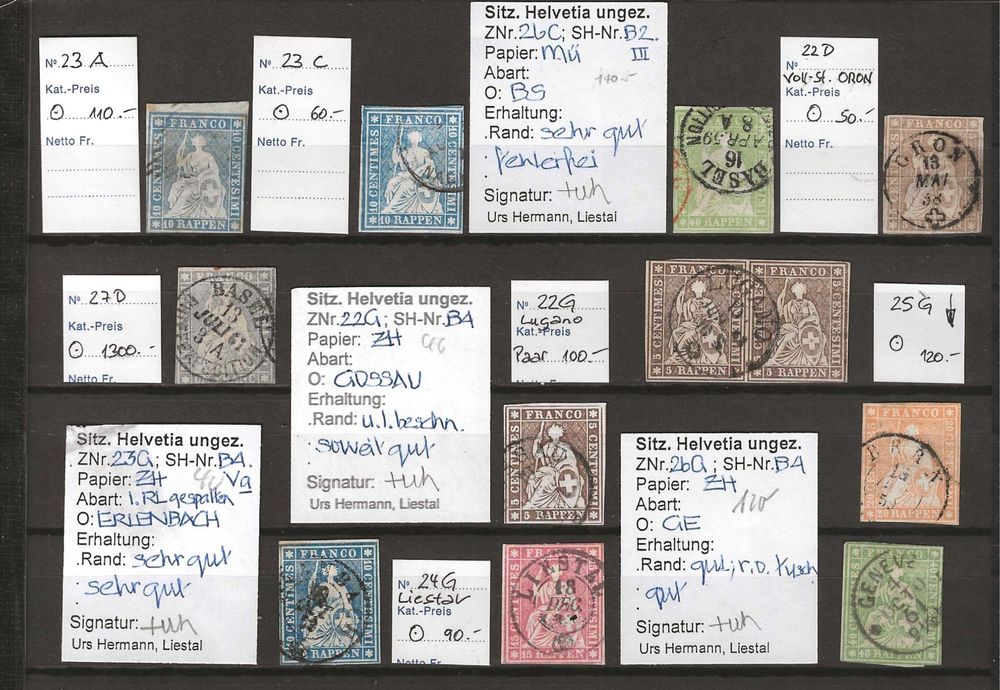 Nº 23 A
Kat.-Preis
110.-
Netto Fr.
FRANCO
10 CENTIMES
10 CENTESIMI
10 RAPPEN
Nº 23 C
Kat.-Preis
60.-
Netto Fr.
FRANCO
10 CENTIMES
10 CENTESIMI
10 RAPPEN
Sitz. Helvetia ungez.
ZNr. 26C; SH-Nr. B2.
Papier: Mü III
Abart: 140.-
O: BS
Erhaltung:
.Rand: sehr gut
. fehlerfrei
Signatur: + uh
Urs Hermann, Liestal
BASEL
16
APR 59
8 A
40 RAPPEN
22 D
Nº
Voll-St. ORON
Kat.-Preis
50.-
Netto Fr.
ORON
13
MAI
58
5 RAPPEN
Nº 27 D
Kat.-Preis
1300.-
Netto Fr.
FRANCO
BASEL
13
JULI 61
3 A
Sitz. Helvetia ungez.
ZNr. 22G; SH-Nr. B4
Papier: ZH
Abart:
O: GOSSAU
Erhaltung:
.Rand: u.l. beschn.
. soweit gut
Signatur: + uh
Urs Hermann, Liestal
FRANCO
5 CENTIMES
5 CENTESIMI
5 RAPPEN
Nº 22G
Lugano
Kat.-Preis
Paar 100.-
Netto Fr.
FRANCO
FRANCO
5 CENTIMES
5 CENTESIMI
5 RAPPEN
5 RAPPEN
25 G
120.-
FRANCO
20 RAPPEN
Sitz. Helvetia ungez.
ZNr. 23G; SH-Nr. B4.
Papier: ZH Va
Abart: 1. RL gespalten
O: ERLENBACH
Erhaltung:
.Rand: sehr gut
. sehr gut
Signatur: + uh
Urs Hermann, Liestal
FRANCO
10 CENTIMES
10 CENTESIMI
10 RAPPEN
Nº 24 G
Liestal
Kat.-Preis
90.-
Netto Fr.
LIESTAL
18
DEC
15 RAPPEN
Sitz. Helvetia ungez.
ZNr. 26G; SH-Nr. B4
Papier: ZH
Abart: 120
O: GE
Erhaltung:
.Rand: gut, r.o.
. gut
Signatur: + uh
Urs Hermann, Liestal
GENEVE
40 RAPPEN